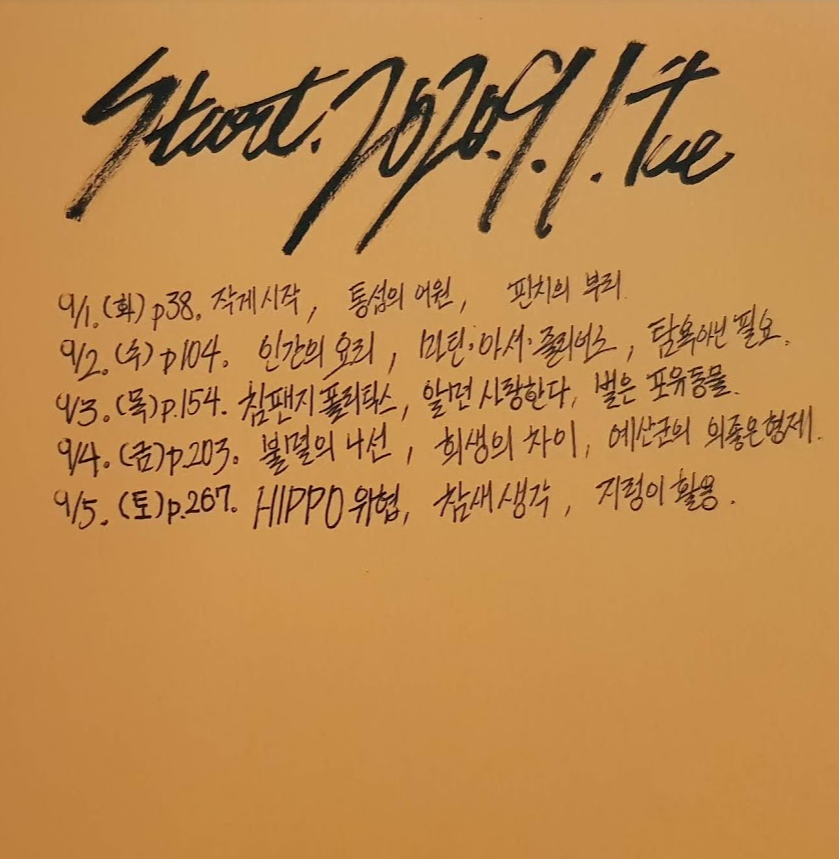 Start. 2020. 9. 1. Tue
9/1. (화) p38. 작게 시작, 통섭의 어원, 핀치의 부리.
9/2. (수) p104. 인간의 요리, 마틴·아서·줄리어스, 탐욕아닌 필요.
9/3. (목) p.154. 침팬지 폴리틱스, 알면 사랑한다, 벌은 포유동물.
9/4. (금) p.203. 불멸의 나선, 희생의 차이, 예산군의 의좋은형제.
9/5. (토) p.267. HIPPO 위협, 참새 생각, 지렁이 활용.